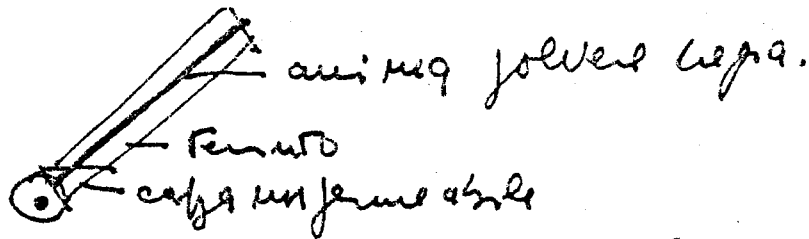 anima polvere nera.
Tessuto
calza impermeabile